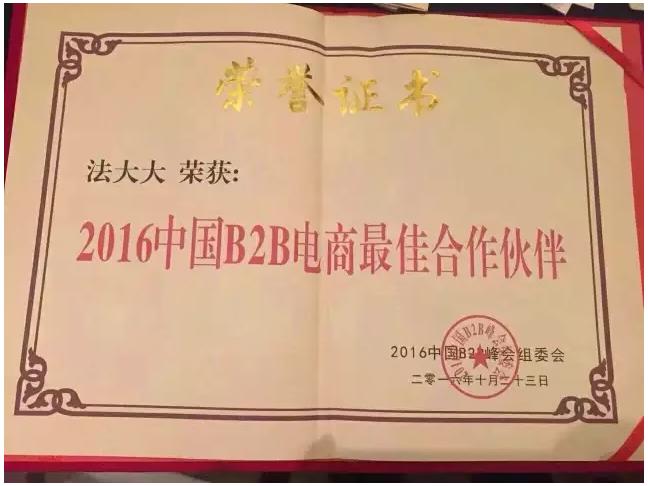 荣誉证书
法大大 荣获:
2016中国B2B电商最佳合作伙伴
2016中国B2B峰会组委会
二零一六年十月二十三日